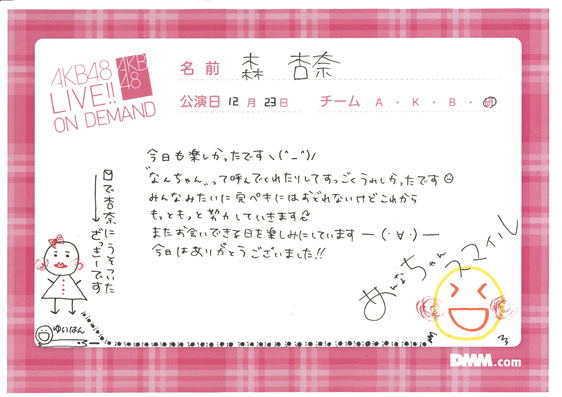 AKB48
LIVE!!
ON DEMAND
AKB
48
名前 森 杏奈
公演日 12月 23日 チーム A・K・B・研
今日も楽しかったです\(^_^)/
"なんちゃん"って呼んでくれたりしてすっごくうれしかったです
みんなみたいに完ペキにはおどれないけどこれから
もっともっと努力していきます
またお会いできる日を楽しみにしています―(・∀・)―
今日はありがとうございました!!
で杏奈にうそついた
ざっきーです
ゆいはん
あんなちゃん
スマイル
DMM.com